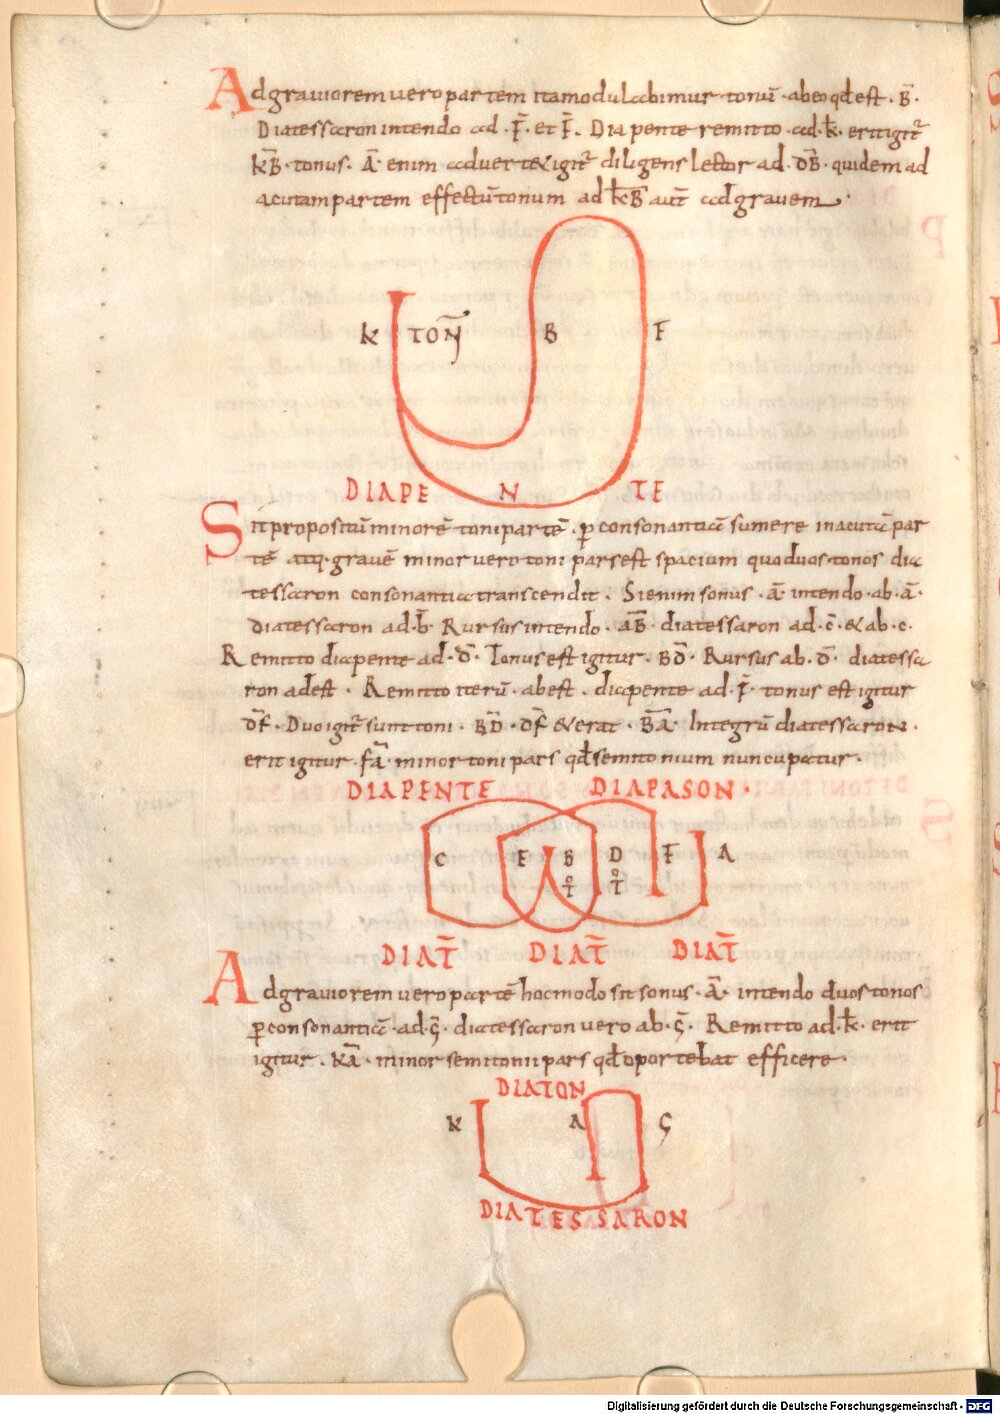 Ad graviorem vero partem ita modulabimur tonū · ab eo qđ est · B̄ ·
Diatessaron intendo ad · F̄ · et F̄ . Diapente remitto · ad · k̄ · erit igit᷑
k̄B̄ · tonus · Ā · enim advertet igit᷑ diligens lector ad · D̄B̄ · quidem ad
acutam partem effectū tonum ad k̄B̄ aut̄ ad gravem ·
K TON̄ B F
DIAPE N TE
Sit propositū minorē toni partē · ꝑ consonantiā sumere in acutā par
tē atq· gravē minor vero toni pars est spacium quo duos tonos dia
tessaron consonantia transcendit . Si enim sonus · ā · intendo · ab · ā ·
diatessaron ad · b̄ · Rursus intendo · āB̄ · diatessaron ad · c̄ · & ab · c ·
Remitto diapente ad · D̄ · Tonus est igitur · BD̄ · Rursus ab · D̄ · diatessa
ron ad est · Remitto iterū · ab est · diapente ad · F̄ · tonus est igitur
D̄F̄ · Duo igit᷑ sunt toni · B̄D̄ · D̄F̄ & erat · B̄Ā · Integrū diatessaron ·
erit igitur · F̄Ā · minor toni pars qđ semitonium nuncupatur ·
DIAPENTE DIAPASON ·
C E B D F A
T T
DIAT̄ DIAT̄ DIAT̄
Ad graviorem vero partē hoc modo sit sonus · Ā · intendo duos tonos
ꝑ consonantiā · ad · Ḡ · diatessaron vero ab · Ḡ · Remitto ad · k̄ · erit
igitur · K̄Ā · minor semitonii pars qđ oportebat efficere ·
DIATON
K A G
DIATESSARON
Digitalisierung gefördert durch die Deutsche Forschungsgemeinschaft - DFG